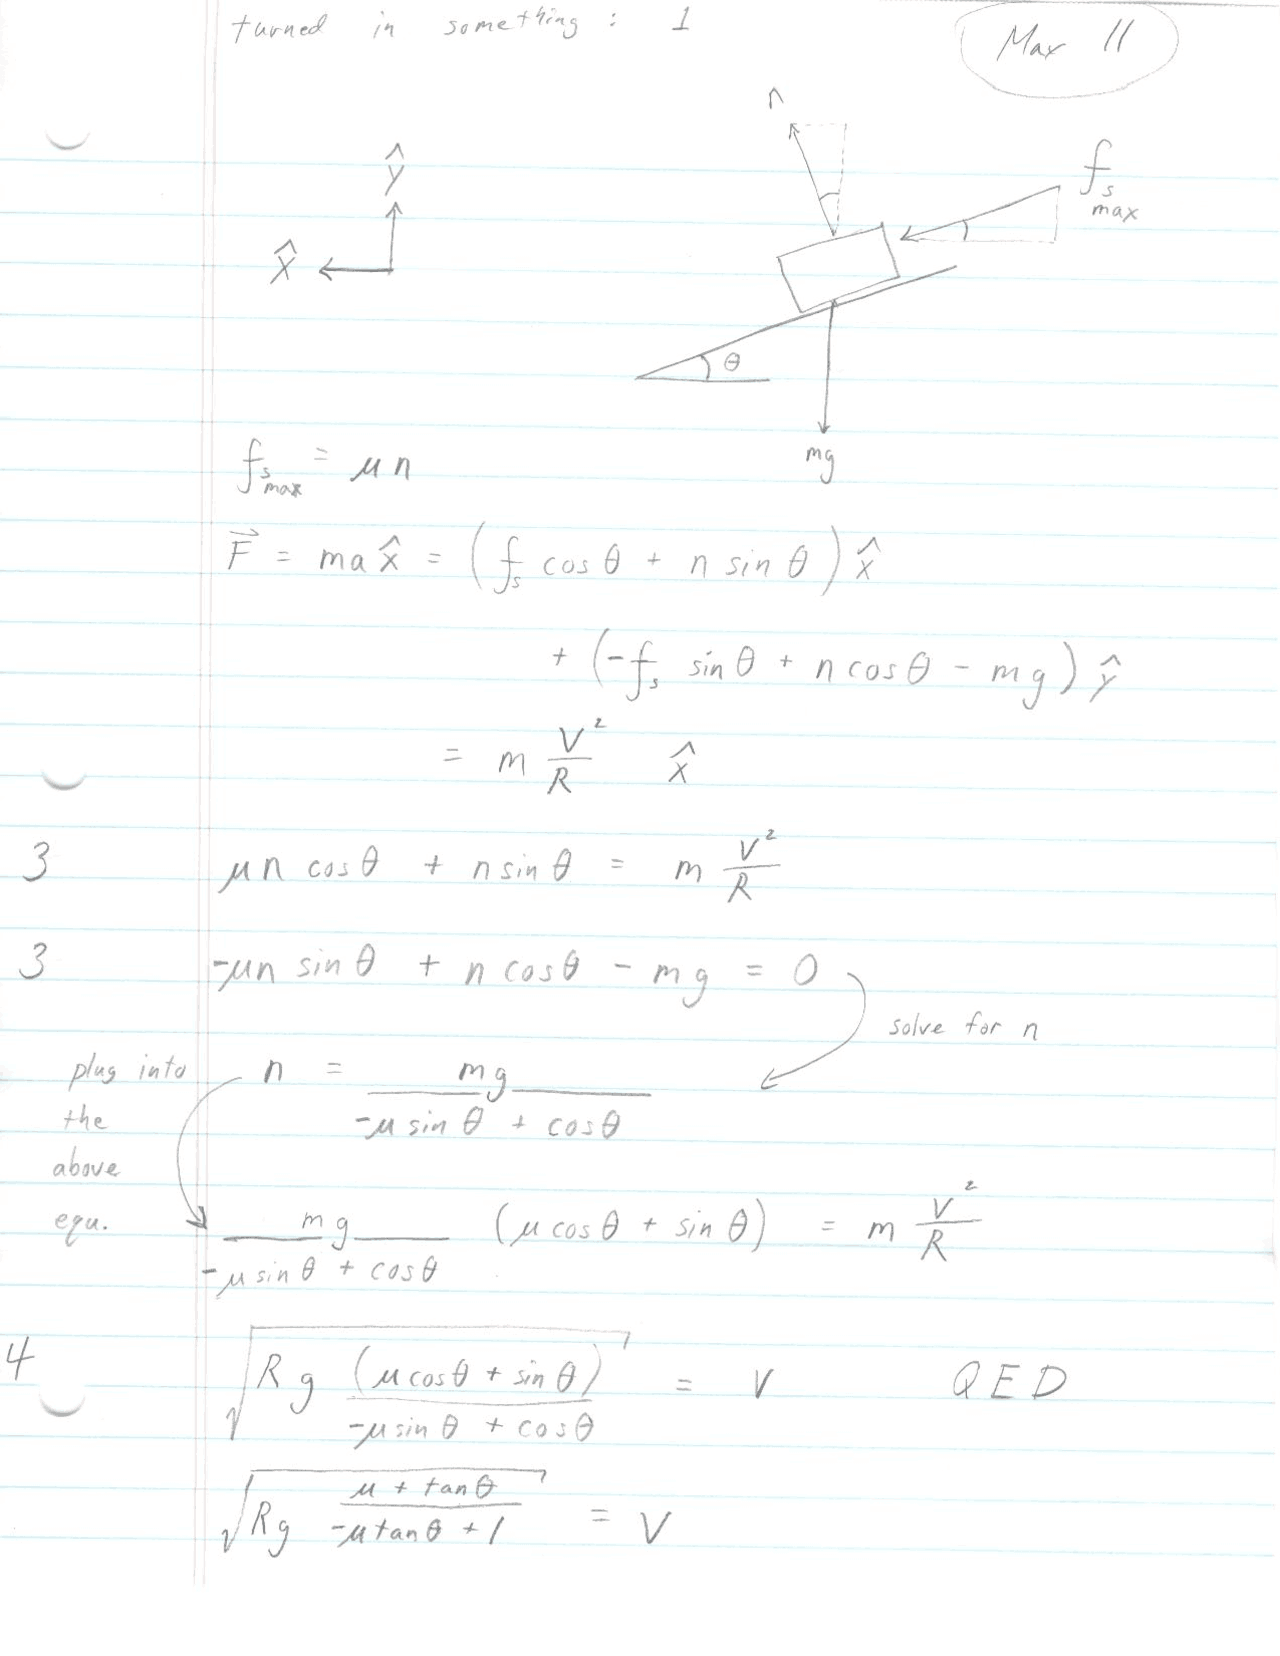 turned in something : 1
Max 11
n
f_s max
ŷ
x̂
θ
mg
f_s max = μ n
F⃗ = ma x̂ = (f_s cos θ + n sin θ) x̂
+ (-f_s sin θ + n cos θ - mg) ŷ
= m V²/R x̂
3 μn cos θ + n sin θ = m V²/R
3 -μn sin θ + n cos θ - mg = 0
solve for n
plug into the above equ.
n = mg / (-μ sin θ + cos θ)
mg / (-μ sin θ + cos θ) (μ cos θ + sin θ) = m V²/R
4 √(Rg (μ cos θ + sin θ) / (-μ sin θ + cos θ)) = V QED
√(Rg (μ + tan θ) / (-μ tan θ + 1)) = V